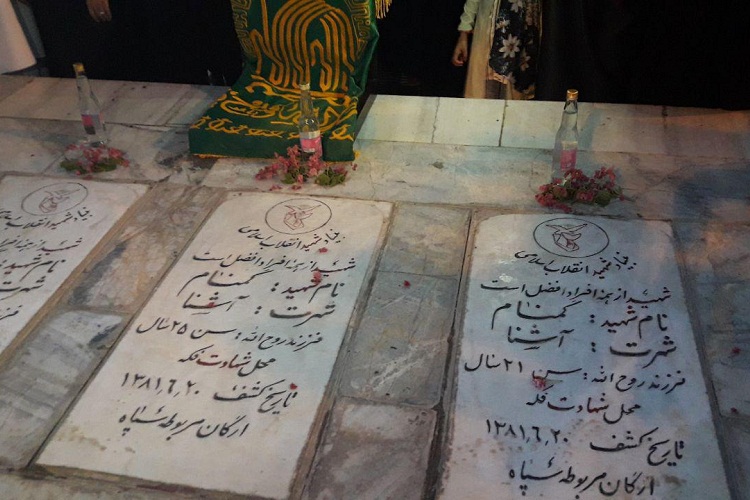 بنیاد شهید انقلاب اسلامی
شهید از همه افراد افضل است
نام شهید : گمنام
شهرت : آشنا
فرزند روح الله : سن ۲۱ سال
محل شهادت فکه
تاریخ کشف ۱۳۸۱٫۶٫۲۰
ارگان مربوطه سپاه
بنیاد شهید انقلاب اسلامی
شهید از همه افراد افضل است
نام شهید : گمنام
شهرت : آشنا
فرزند روح الله : سن ۲۵ سال
محل شهادت فکه
تاریخ کشف ۱۳۸۱٫۶٫۲۰
ارگان مربوطه سپاه
بنیاد شهید انقلاب اسلامی
شهید از همه افرا
نام شهید :
شهرت :
فرزند رو